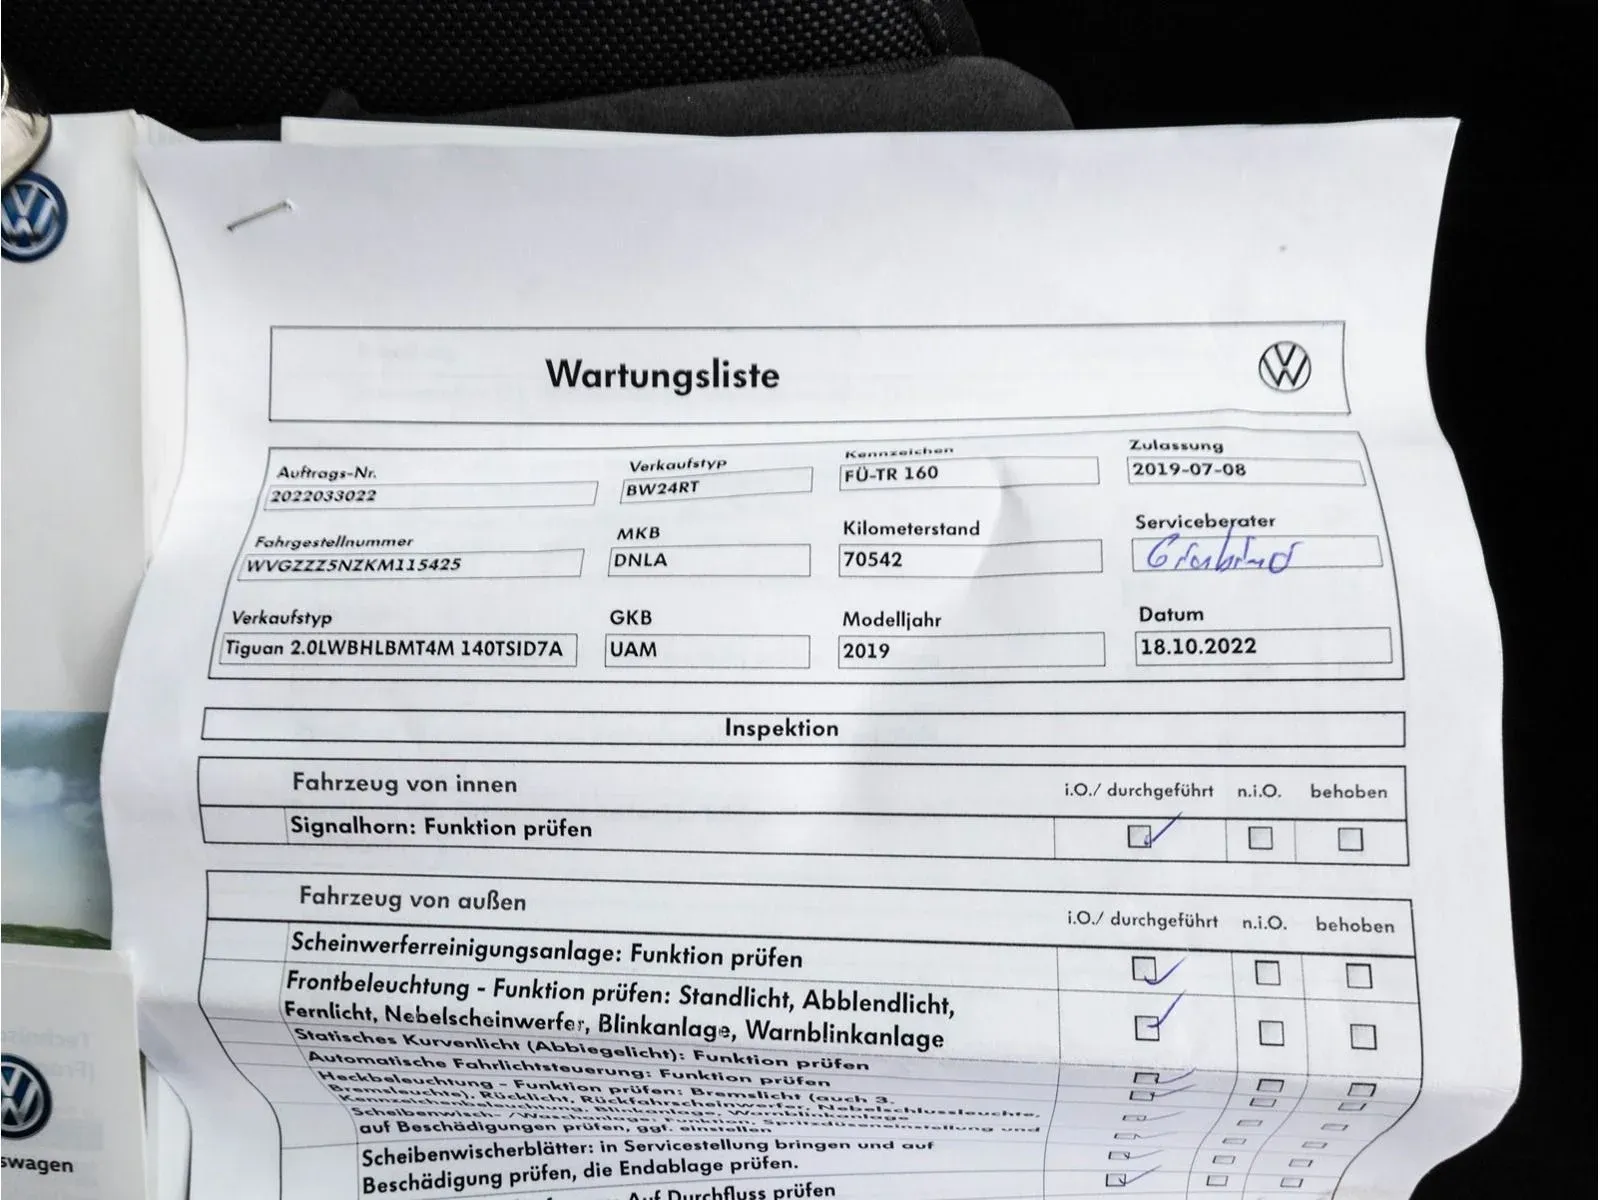 Wartungsliste
Auftrags-Nr.
2022033022
Verkaufstyp
BW24RT
Kennzeichen
FÜ-TR 160
Zulassung
2019-07-08
Fahrgestellnummer
WVGZZZ5NZKM115425
MKB
DNLA
Kilometerstand
70542
Serviceberater
Verkaufstyp
Tiguan 2.0LWBHLBMT4M 140TSID7A
GKB
UAM
Modelljahr
2019
Datum
18.10.2022
Inspektion
Fahrzeug von innen i.O./ durchgeführt n.i.O. behoben
Signalhorn: Funktion prüfen
Fahrzeug von außen i.O./ durchgeführt n.i.O. behoben
Scheinwerferreinigungsanlage: Funktion prüfen
Frontbeleuchtung - Funktion prüfen: Standlicht, Abblendlicht,
Fernlicht, Nebelscheinwerfer, Blinkanlage, Warnblinkanlage
Statisches Kurvenlicht (Abbiegelicht): Funktion prüfen
Automatische Fahrlichtsteuerung: Funktion prüfen
Heckbeleuchtung - Funktion prüfen: Bremslicht (auch 3.
Bremsleuchte), Rücklicht, Rückfahrscheinwerfer, Nebelschlussleuchte,
Kennzeichenbeleuchtung, Blinkanlage, Warnblinkanlage
Scheibenwisch- /Waschanlage: Funktion, Spritzdüseneinstellung und
auf Beschädigungen prüfen, ggf. einstellen
Scheibenwischerblätter: in Servicestellung bringen und auf
Beschädigung prüfen, die Endablage prüfen.
Auf Durchfluss prüfen
swagen